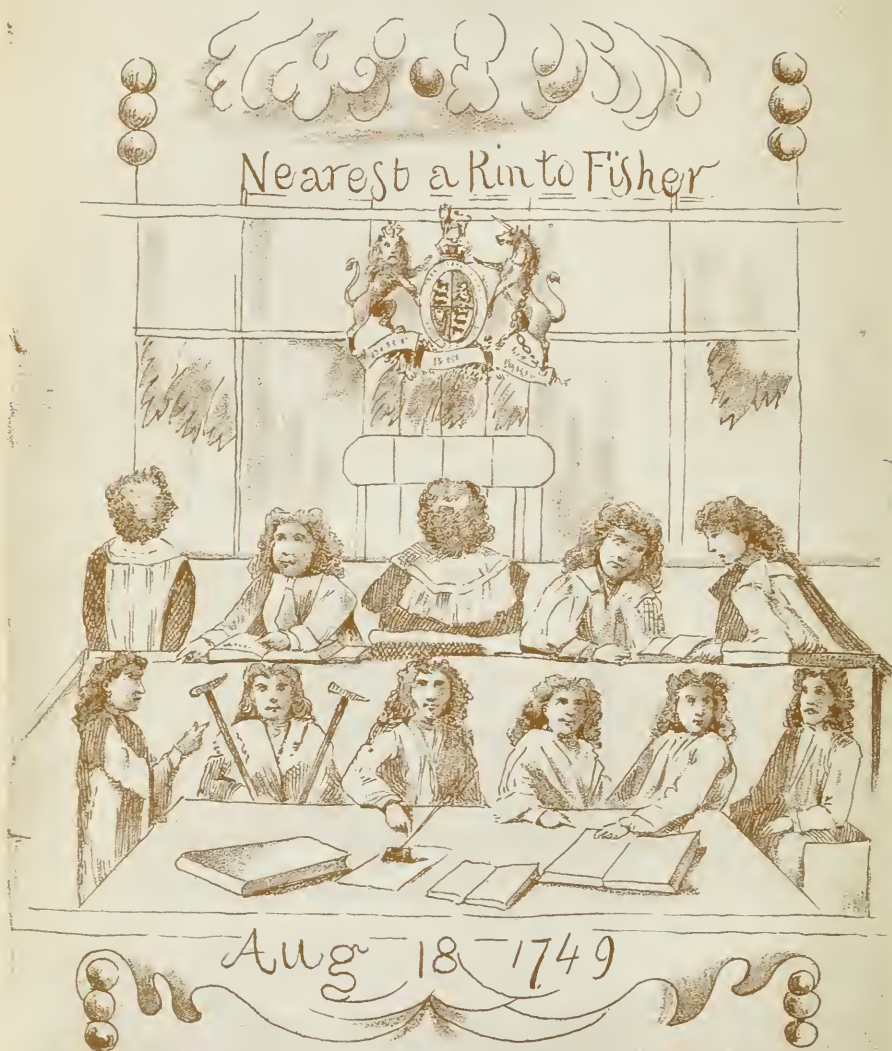 Nearest a Kin to Fisher
Aug 18 1749